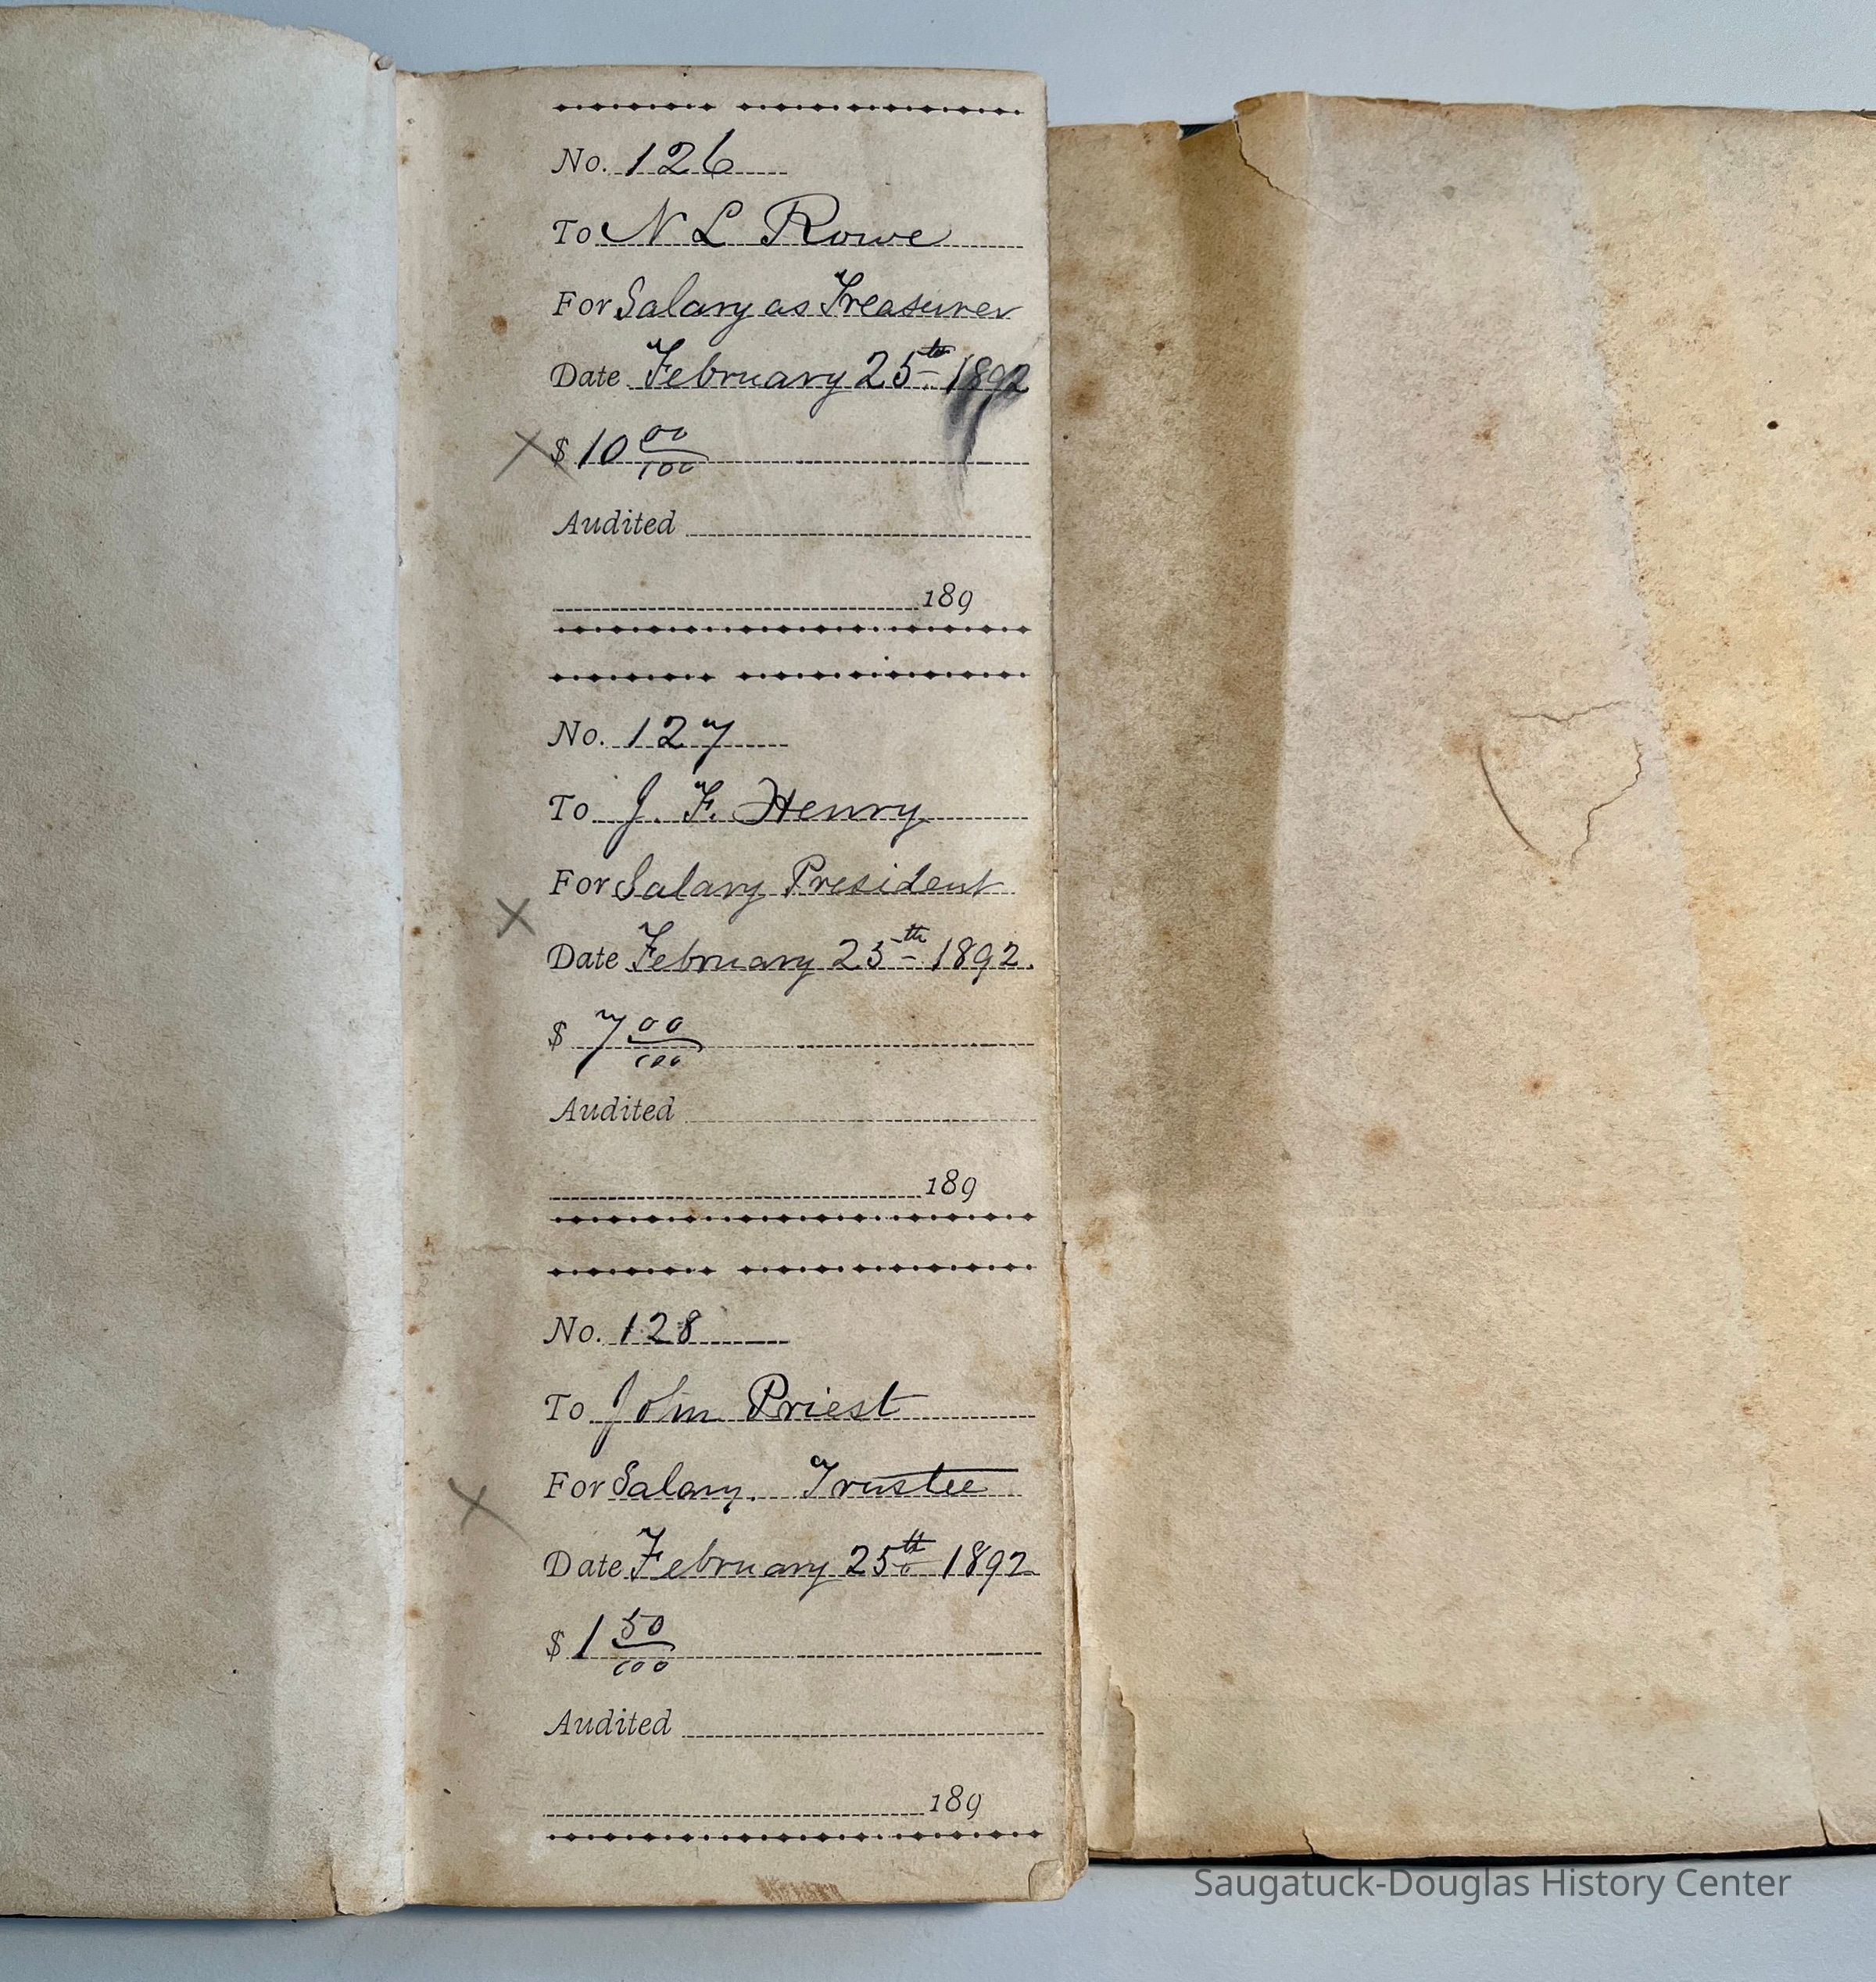 No. 126
To N L Rowe
For Salary as Treasurer
Date February 25th 1892
$ 10 00/100
Audited
189
No. 127
To J. F. Henry
For Salary President
Date February 25th 1892.
$ 7 00/100
Audited
189
No. 128
To John Priest
For Salary. Trustee
Date February 25th 1892
$ 1 50/100
Audited
189
Saugatuck-Douglas History Center